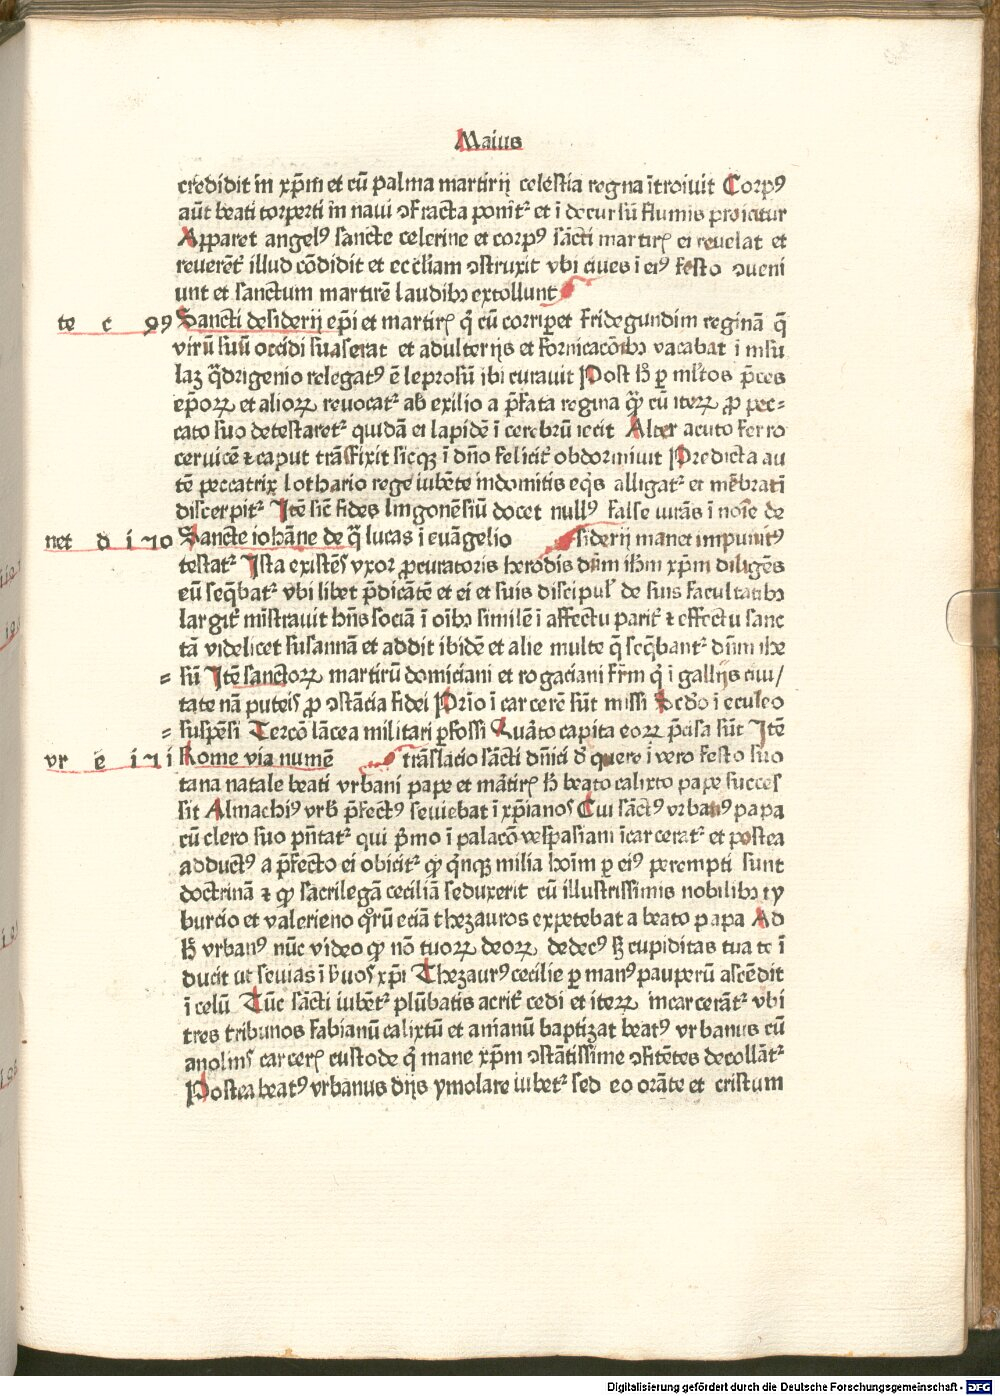 Maius
credidit in xp̄m et cū palma martirij celestia regna ītroiuit Corpꝰ
aūt beati torperti in naui ꝯfracta ponit᷑ et ī decursū flumis proicitur
Apparet angelꝰ sancte celerine et corpꝰ sācti martirꝭ ei reuelat et
reuerēt᷑ illud cōdidit et eccl̄iam ꝯstruxit vbi ciues ī eiꝰ festo ꝯueni
unt et sanctum martirē laudibꝫ extollunt
te c 99 Sancti desiderij ep̄i et martirꝭ q̇ cū corriperet fridegundim reginā q̄
virū suū occidi suaserat et adulterijs et fornicacōibꝫ vacabat ī insu
laꝫ q̄drigenio relegatꝰ ē leprosū ibi curauit Post h̄ ꝑ ml̄tos p̄ces
ep̄oꝝ et alioꝝ reuocat᷑ ab exilio a p̄fata regina qꝫ cū iteꝝ ꝓ pec=
cato suo detestaret᷑ quidā ei lapidē ī cerebrū iecit Alter acuto ferro
ceruicē ⁊ caput trāsfixit sicqꝫ ī dn̄o felicit᷑ obdormiuit Predicta au
tē peccatrix lothario rege iubēte indomitis eqͥs alligat᷑ et mēbratī
discerpit᷑ Itē sic̄ fides lingonēsiū docet nullꝰ false iurās ī noīe de
net d i ꝛ0 Sancte iohāne de q̄ lucas ī euāgelio siderij manet impunitꝰ
testat᷑ Ista existēs vxor ꝓcuratoris herodis dn̄m ih̄m xp̄m diligēs
eū seq̄bat᷑ vbi libet p̄dicāte et ei et suis discipul̕ de suis facultatibꝫ
largit᷑ mīstrauit hn̄s sociā ī oībꝫ similē ī affectu parit᷑ ⁊ effectu sanc
tā videlicet susannā et addit ibidē et alie multe q̄ seq̄bant᷑ dn̄m ihe
= sū Itē sanctoꝝ martirū domiciani et rogaciani fr̄m q̇ ī gallijs ciui/
tate nāputeis ꝓ ꝯstācia fidei Prīo ī carcerē sūt missi Secdo ī eculeo
= suspēsi Tercō lācea militari ꝑfossi Quarto capita eoꝝ p̄cisa sūt Itē
vr e i ꝛ i Rome via numē trāslacio sācti dn̄ici d̄ quere ī vero festo suo
tana natale beati vrbani pape et mātirꝭ h̄ beato calixto pape succes
sit Almachiꝰ vrb̕ p̄fectꝰ seuiebat ī xp̄ianos Cui sāctꝰ vrbanꝰ papa
cū clero suo pn̄tat᷑ qui p̄mo ī palacō vespasiani īcarcerat᷑ et postea
adductꝰ a p̄fecto ei obicit᷑ qꝫ qͥnqꝫ milia hoīm ꝑ eiꝰ perempti sunt
doctrinā ⁊ qꝫ sacrilegā ceciliā seduxerit cū illustrissimis nobilibꝫ ty
burcio et valerieno qͦrū eciā thezauros expetebat a beato papa Ad
h̄ vrbanꝰ nūc video qꝫ nō tuoꝝ deoꝝ dedecꝰ sꝫ cupiditas tua te ī
ducit ut seuias ī ẜuos xp̄i Thezaurꝰ cecilie ꝑ manꝰ pauperū ascēdit
ī celū Tūc sācti iubēt᷑ plūbatis acrit᷑ cedi et iteꝝ incarcerāt᷑ vbi
tres tribunos fabianū calixtū et anianū baptizat beatꝰ vrbanus cū
anolinꝰ carcerꝭ custode q̇ mane xp̄m ꝯstātissime ꝯfitētes decollāt᷑
Postea beatꝰ vrbanus dijs ymolare iubet᷑ sed eo orāte et cristum
Digitalisierung gefördert durch die Deutsche Forschungsgemeinschaft - DFG